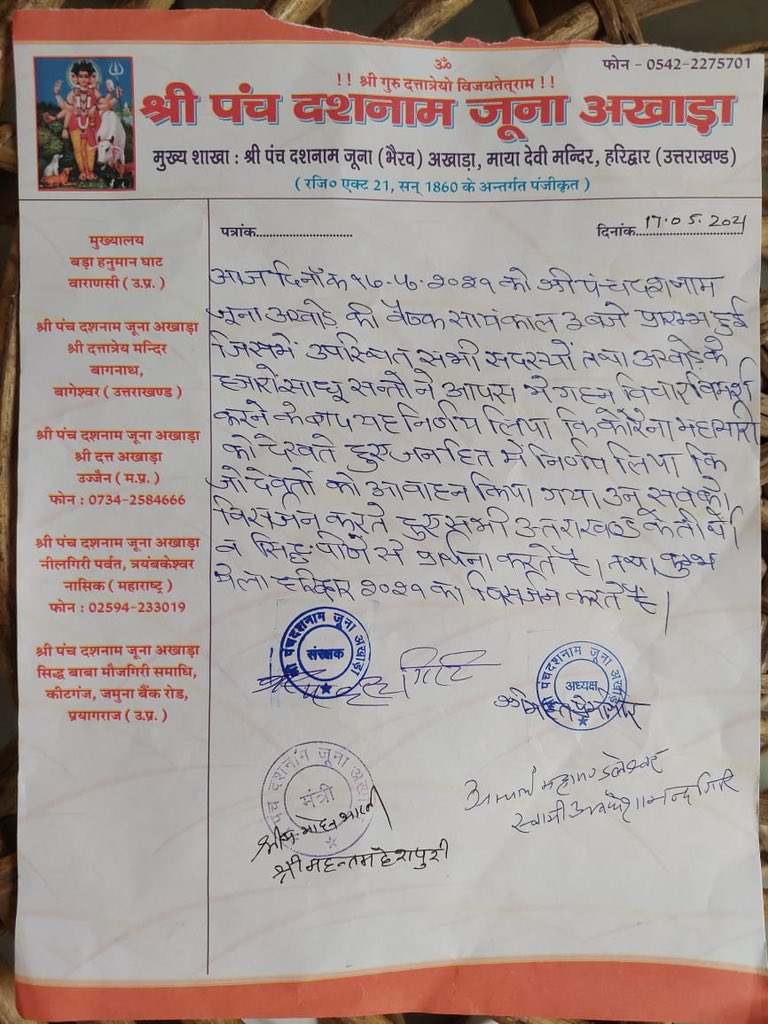 ॐ
फोन - 0542-2275701
!! श्री गुरु दत्तात्रेयो विजयतेतराम !!
श्री पंच दशनाम जूना अखाड़ा
मुख्य शाखा : श्री पंच दशनाम जूना (भैरव) अखाड़ा, माया देवी मन्दिर, हरिद्वार (उत्तराखण्ड)
( रजि० एक्ट 21, सन् 1860 के अन्तर्गत पंजीकृत )
पत्रांक............................
दिनांक 17.05.2021
मुख्यालय
बड़ा हनुमान घाट
वाराणसी ( उ.प्र. )
श्री पंच दशनाम जूना अखाड़ा
श्री दत्तात्रेय मन्दिर
बागनाथ,
बागेश्वर ( उत्तराखण्ड )
श्री पंच दशनाम जूना अखाड़ा
श्री दत्त अखाड़ा
उज्जैन ( म.प्र. )
फोन : 0734-2584666
श्री पंच दशनाम जूना अखाड़ा
नीलगिरी पर्वत, त्रयंबकेश्वर
नासिक ( महाराष्ट्र )
फोन : 02594-233019
श्री पंच दशनाम जूना अखाड़ा
सिद्ध बाबा मौजगिरी समाधि,
कीटगंज, जमुना बैंक रोड,
प्रयागराज ( उ.प्र. )
आज दिनाँक १७-५-२०२१ को श्री पंचदशनाम
जूना अखाड़े की बैठक सायंकाल ३ बजे प्रारम्भ हुई
जिसमें उपस्थित सभी सदस्यों तथा अखाड़े के
हजारों साधू सन्तों ने आपस में गहन विचार विमर्श
करने के यह निर्णय लिया कि कोरोना महामारी
को देखते हुए जनहित में निर्णय लिया कि
जो देवतों को आवाहन किया गया उन सबको
विसर्जन करते हुए सभी उत्तराखण्ड के तीर्थों
व से प्रार्थना करते है। तथा कुम्भ
मेला हरिद्वार २०२१ का विसर्जन करते है।
श्री पंचदशनाम जूना अखाड़ा
संरक्षक
पंचदशनाम जूना अखाड़ा
अध्यक्ष
श्रीमहन्त प्रेमगिरि
पंच दशनाम जूना अखाड़ा
मंत्री
मोहन भारती
श्री महन्त महेशपुरी
आचार्य महामण्डलेश्वर
स्वामी अवधेशानन्द गिरि